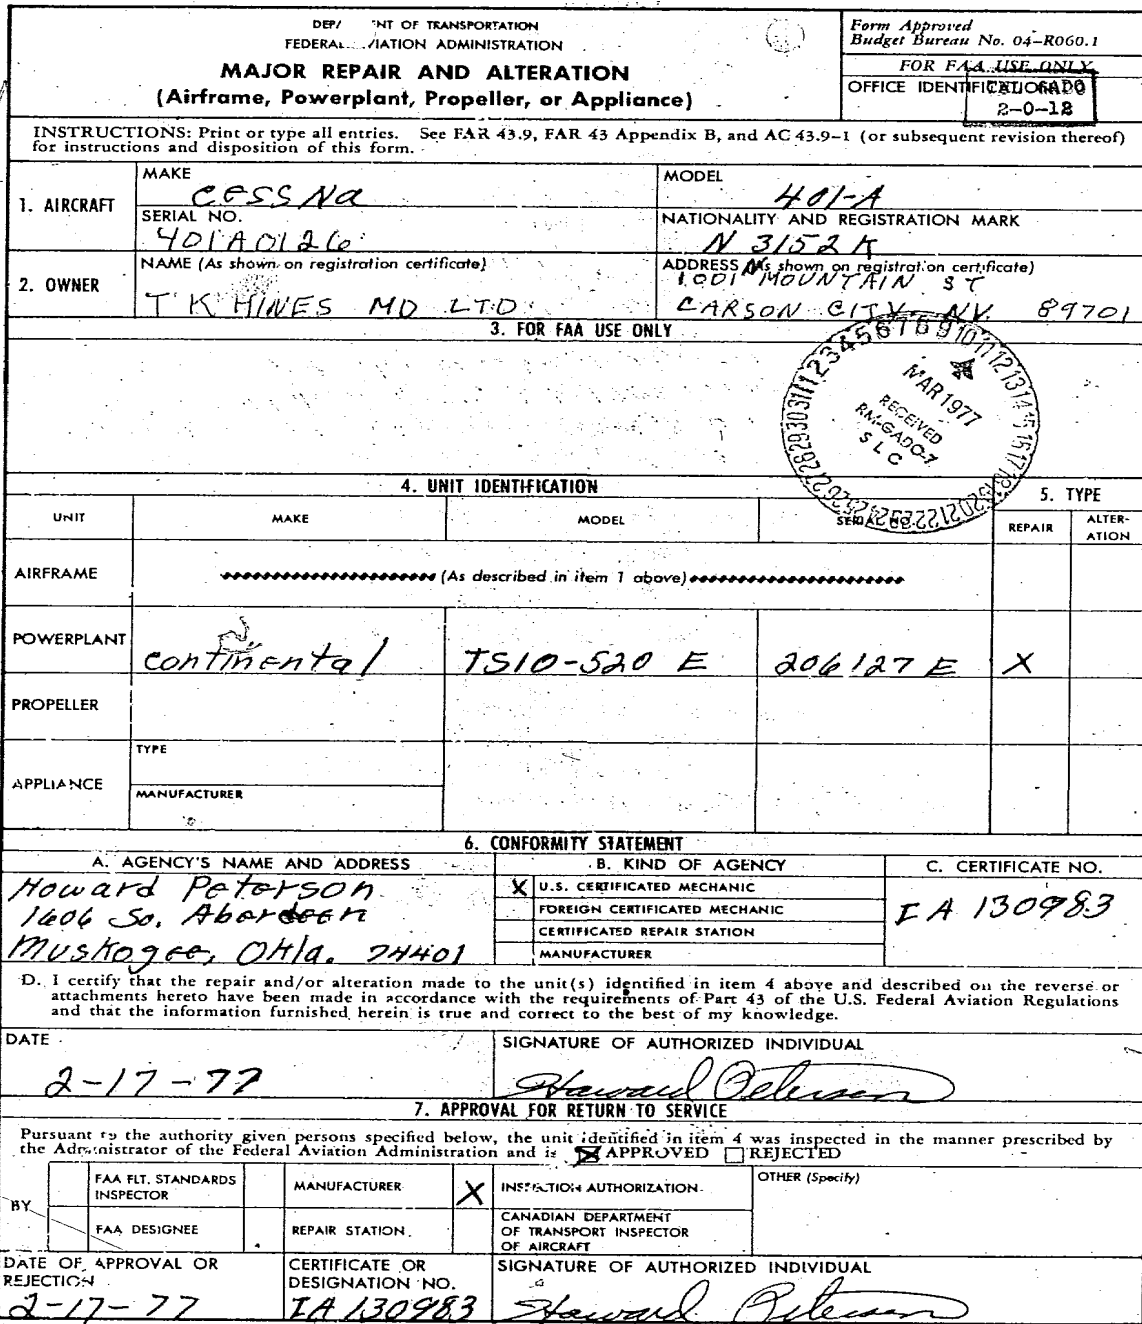 DEP/ NT OF TRANSPORTATION
FEDERAL VIATION ADMINISTRATION
MAJOR REPAIR AND ALTERATION
(Airframe, Powerplant, Propeller, or Appliance)
Form Approved
Budget Bureau No. 04-R060.1
FOR FAA USE ONLY
OFFICE IDENTIFICATION
GADO
2-0-18
INSTRUCTIONS: Print or type all entries. See FAR 43.9, FAR 43 Appendix B, and AC 43.9-1 (or subsequent revision thereof)
for instructions and disposition of this form.
1. AIRCRAFT
MAKE
CESSNa
MODEL
401-A
SERIAL NO.
401A0126
NATIONALITY AND REGISTRATION MARK
N 3152K
2. OWNER
NAME (As shown on registration certificate)
T K HINES MD LTD
ADDRESS (As shown on registration certificate)
1001 MOUNTAIN ST
CARSON CITY, NV. 89701
3. FOR FAA USE ONLY
1 2 3 4 5 6 7 8 9 10 11 12 13 14 15 16 17 18 19 20 21 22 23 24 25 26 27 28 29 30 31
MAR 1977
RECEIVED
RM-GADO-7
S L C
4. UNIT IDENTIFICATION
5. TYPE
UNIT
MAKE
MODEL
SERIAL NO.
REPAIR
ALTER-
ATION
AIRFRAME
(As described in item 1 above)
POWERPLANT
continental
TSIO-520 E
206127 E
X
PROPELLER
APPLIANCE
TYPE
MANUFACTURER
6. CONFORMITY STATEMENT
A. AGENCY'S NAME AND ADDRESS
B. KIND OF AGENCY
C. CERTIFICATE NO.
Howard Peterson
1606 So. Aberdeen
Muskogee, Okla. 74401
X U.S. CERTIFICATED MECHANIC
FOREIGN CERTIFICATED MECHANIC
CERTIFICATED REPAIR STATION
MANUFACTURER
IA 130983
D. I certify that the repair and/or alteration made to the unit(s) identified in item 4 above and described on the reverse or
attachments hereto have been made in accordance with the requirements of Part 43 of the U.S. Federal Aviation Regulations
and that the information furnished herein is true and correct to the best of my knowledge.
DATE
2-17-77
SIGNATURE OF AUTHORIZED INDIVIDUAL
Howard Peterson
7. APPROVAL FOR RETURN TO SERVICE
Pursuant to the authority given persons specified below, the unit identified in item 4 was inspected in the manner prescribed by
the Administrator of the Federal Aviation Administration and is X APPROVED REJECTED
BY
FAA FLT. STANDARDS
INSPECTOR
MANUFACTURER
X INSPECTION AUTHORIZATION
OTHER (Specify)
FAA DESIGNEE
REPAIR STATION
CANADIAN DEPARTMENT
OF TRANSPORT INSPECTOR
OF AIRCRAFT
DATE OF APPROVAL OR
REJECTION
2-17-77
CERTIFICATE OR
DESIGNATION NO.
IA 130983
SIGNATURE OF AUTHORIZED INDIVIDUAL
Howard Peterson